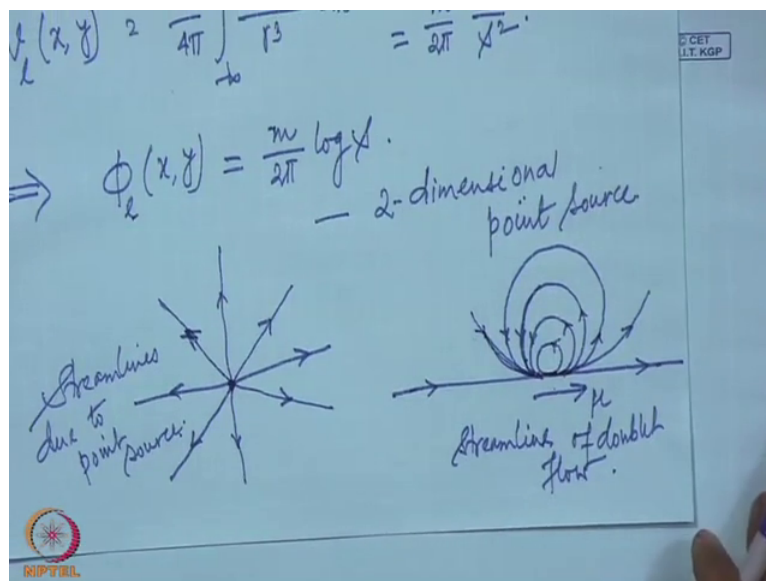 (x, y) = 1/4π ∫ r³ = m/2π 1/s².
© CET
I.I.T. KGP
⇒ ϕ_l (x, y) = m/2π log s.
— 2-dimensional
point source
Streamlines
due to
point source.
μ
Streamlines of doublet
flow.
NPTEL